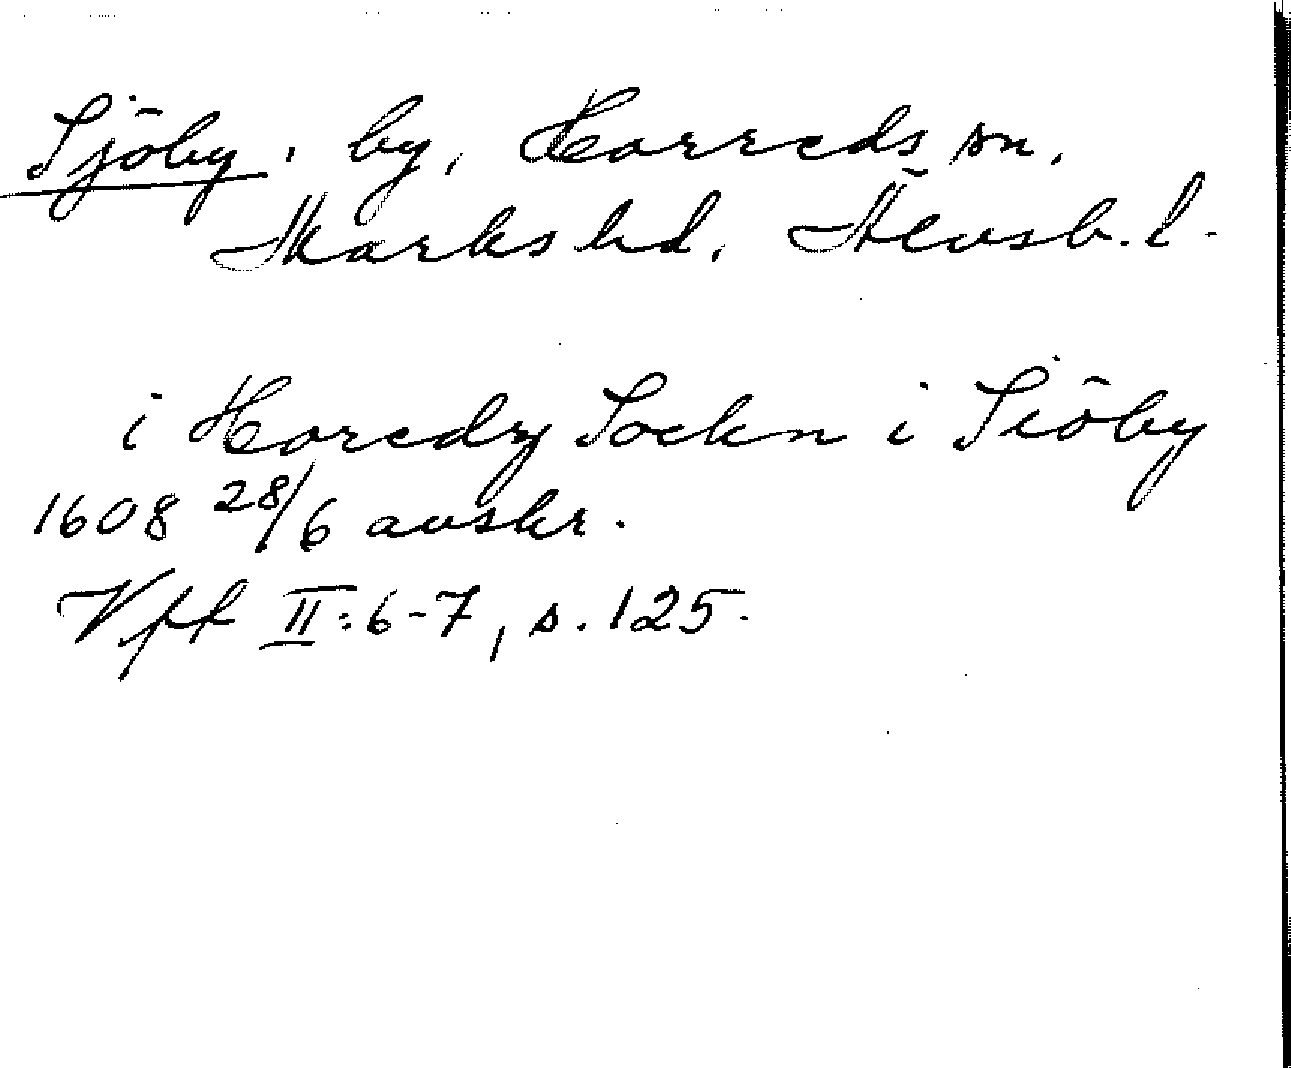 Sjöby, by, Horreds sn,
Marks hd, Älvsb. l.
i Horedz Sockn i Siöby
1608 28/6 avskr.
Vff II:6-7, s. 125.